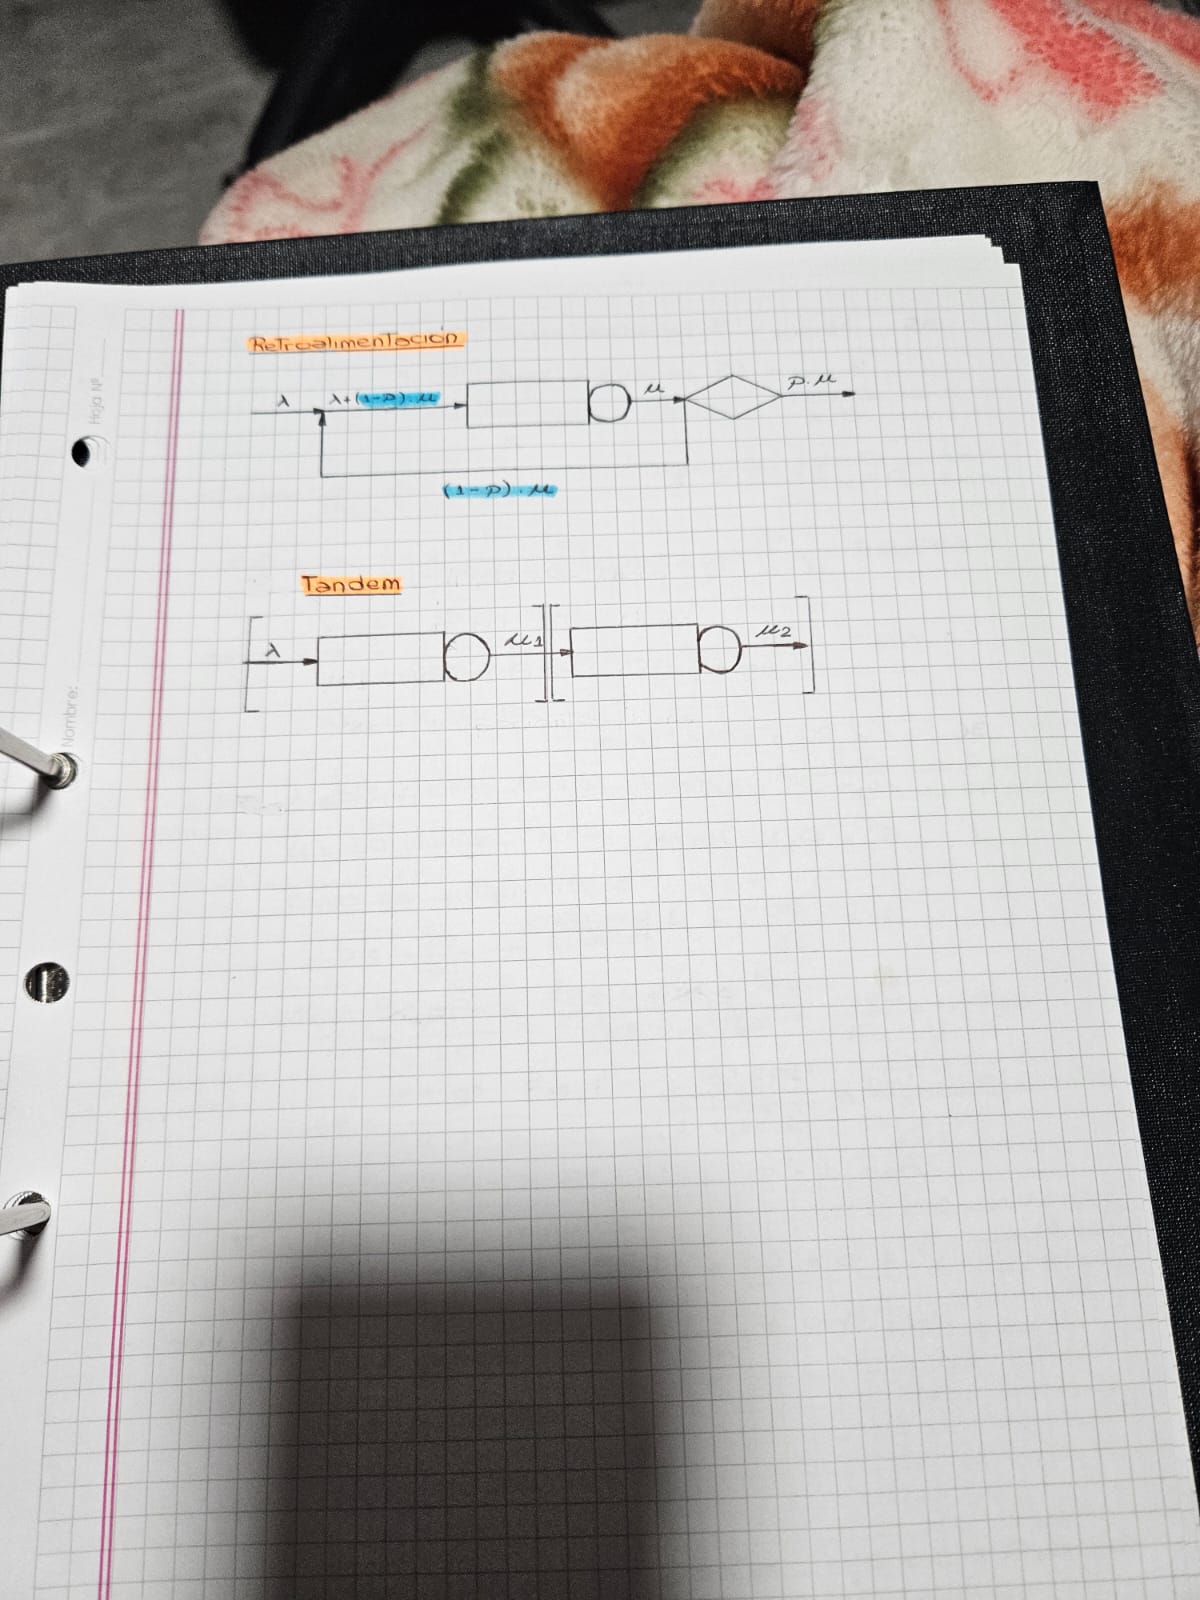 Hoja Nº
Nombre:
Retroalimentación
λ
λ+(1-p).μ
μ
p.μ
(1-p).μ
Tandem
λ
μ1
μ2